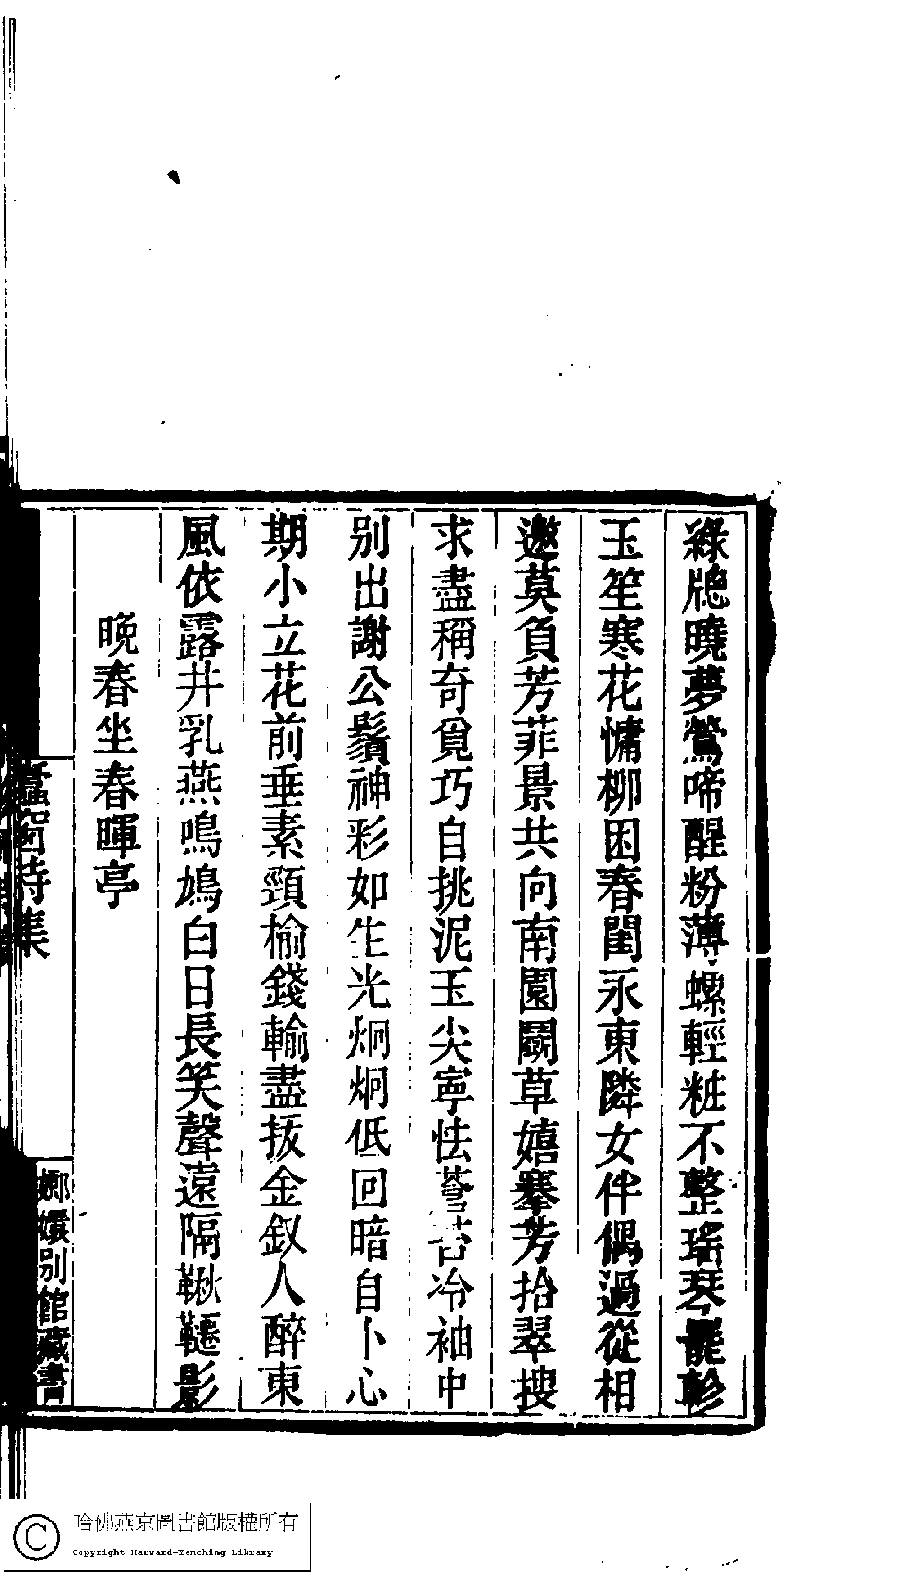 綠牕曉夢鶯啼醒粉薄螺輕粧不整瑤琴羅軫
玉笙寒花慵柳困春閨永東隣女伴偶過從相
邀莫負芳菲景共向南園鬭草嬉搴芳拾翠搜
求盡稱奇覓巧自挑泥玉尖寧怯蒼苔冷袖中
别出謝公鬚神彩如生光炯炯低回暗自卜心
期小立花前垂素頸榆錢輸盡拔金釵人醉東
風依露井乳燕鳴鳩白日長笑聲遠隔鞦韆影
晚春坐春暉亭
蠧窗詩集
嫏嬛别館藏書
哈佛燕京圖書館版權所有
Copyright Harvard-Yenching Library